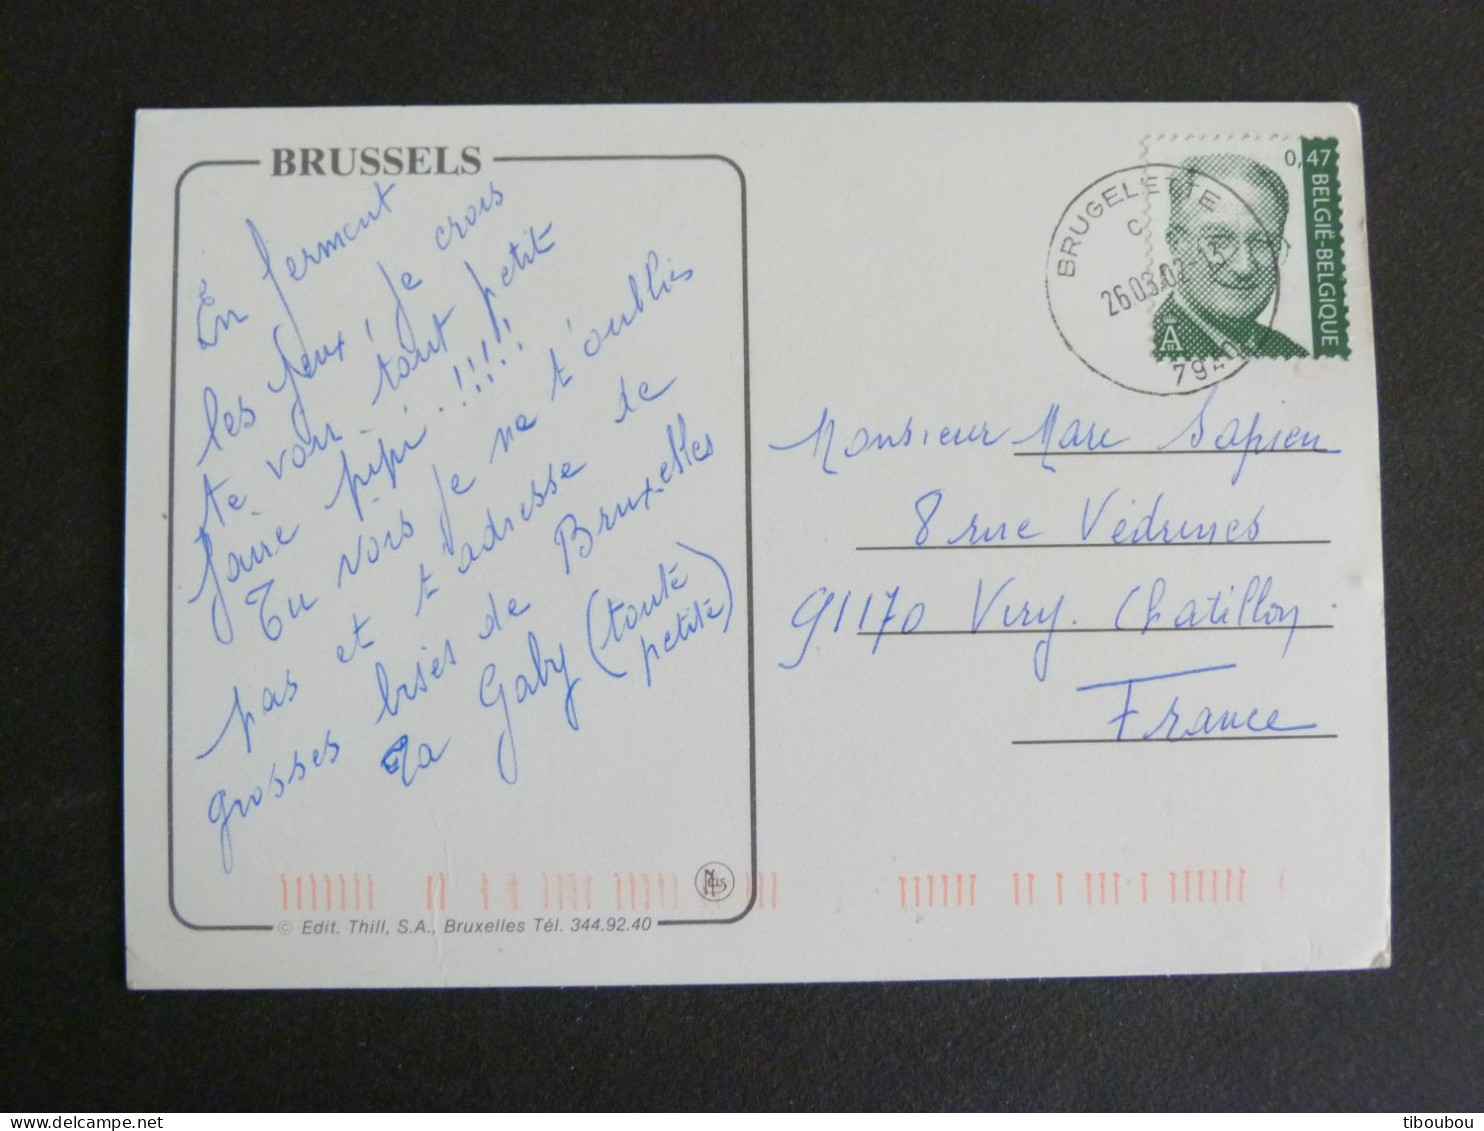 BRUSSELS
En fermant
les yeux, je crois
te voir tout petit
faire pipi.!!!!!
Tu vois je ne t'oublies
pas et t'adresse de
grosses bises de Bruxelles
Ta Gaby (toute
petite)
© Edit. Thill, S.A., Bruxelles Tél. 344.92.40
nels
0,47
BELGIË-BELGIQUE
A
BRUGELETTE
C
26.03.02-15
7940
Monsieur Marc Sapien
8 rue Védrines
91170 Viry. Chatillon.
France
tiboubou